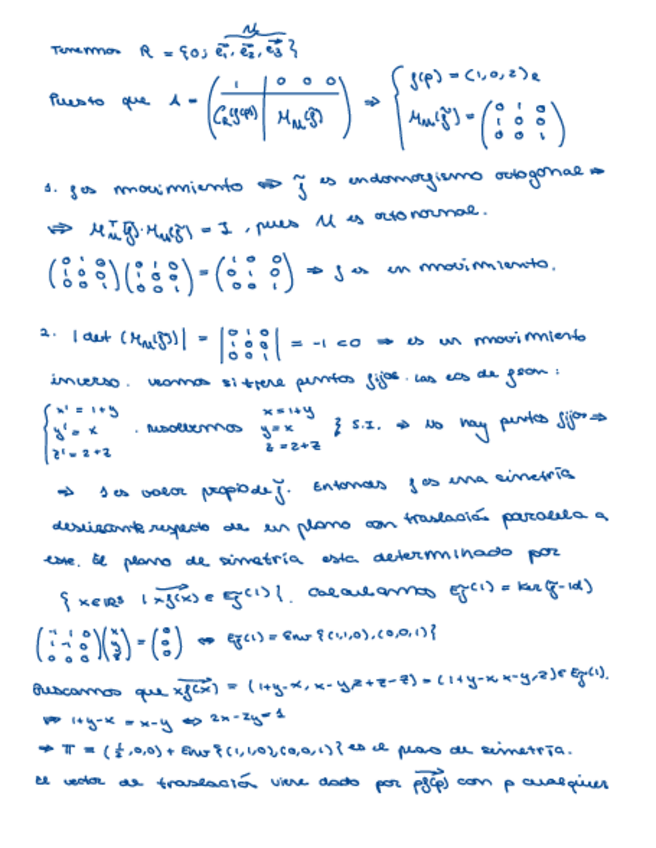 Tenemos R = {0; e₁, e₂, e₃} 𝓤
Puesto que A = ( 1 | 0 0 0 / C_R(f(p)) | M_𝓤(f̃) ) ⇒ { f(p) = (1,0,2)_R
M_𝓤(f̃) = (0 1 0 / 1 0 0 / 0 0 1)
1. f es movimiento ⇔ f̃ es endomorfismo ortogonal ⇔
⇔ M_𝓤ᵀ(f̃)·M_𝓤(f̃) = I, pues 𝓤 es ortonormal.
(0 1 0 / 1 0 0 / 0 0 1)(0 1 0 / 1 0 0 / 0 0 1) = (1 0 0 / 0 1 0 / 0 0 1) ⇒ f es un movimiento.
2. |det (M_𝓤(f̃))| = |0 1 0 / 1 0 0 / 0 0 1| = -1 < 0 ⇒ es un movimiento
inverso. veamos si tiene puntos fijos. Las ecs de f son:
{ x' = 1+y / y' = x / z' = 2+z . resolvemos x = 1+y / y = x / z = 2+z } S.I. ⇒ no hay puntos fijos ⇒
⇒ 1 es valor propio de f̃. Entonces f es una simetría
deslizante respecto de un plano con traslación paralela a
este. El plano de simetría esta determinado por
{ x∈ℝ³ | xf(x) ∈ E_f̃(1) }. Calculamos E_f̃(1) = Ker(f̃-id)
(-1 1 0 / 1 -1 0 / 0 0 0)(x / y / z) = (0 / 0 / 0) ⇔ E_f̃(1) = Env {(1,1,0), (0,0,1)}
Buscamos que xf(x) = (1+y-x, x-y, 2+z-z) = (1+y-x, x-y, 2) ∈ E_f̃(1).
⇔ 1+y-x = x-y ⇔ 2x-2y = 1
⇒ π = (½,0,0) + Env {(1,1,0), (0,0,1)} es el plano de simetría.
El vector de traslación viene dado por pf(p) con p cualquier